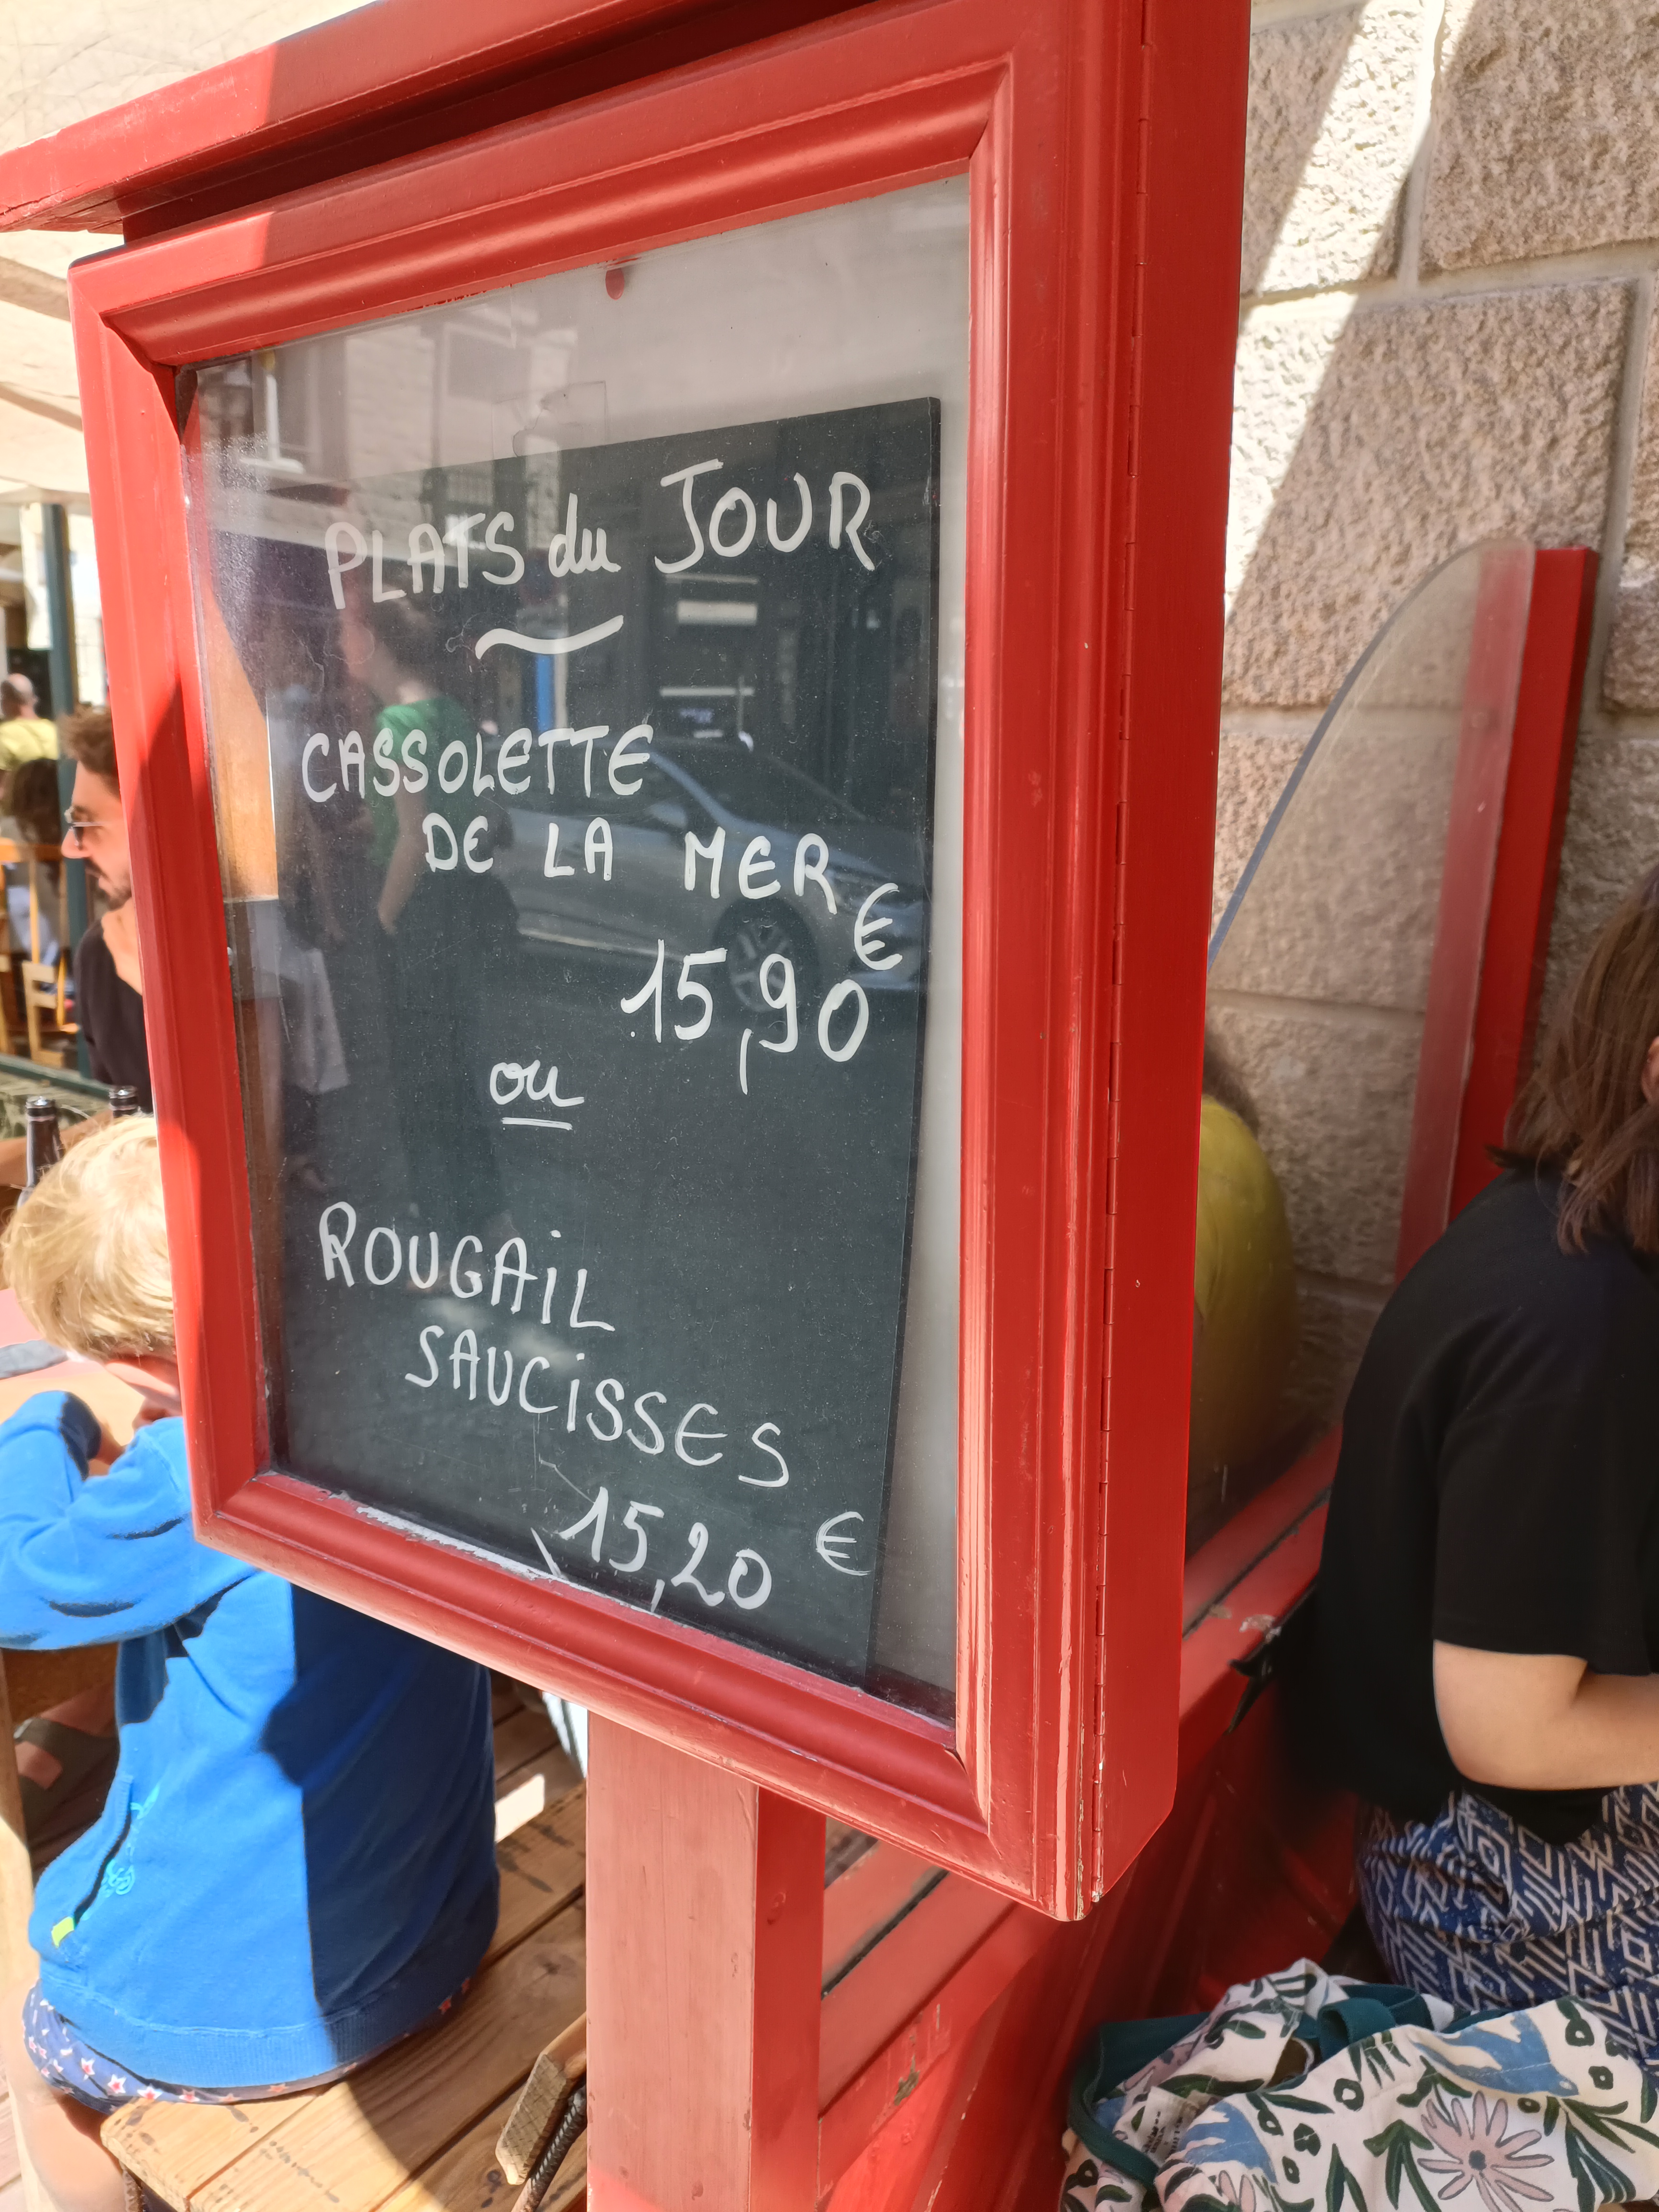 PLATS du JOUR
CASSOLETTE
DE LA MER
15,90 €
ou
ROUGAIL
SAUCISSES
15,20 €